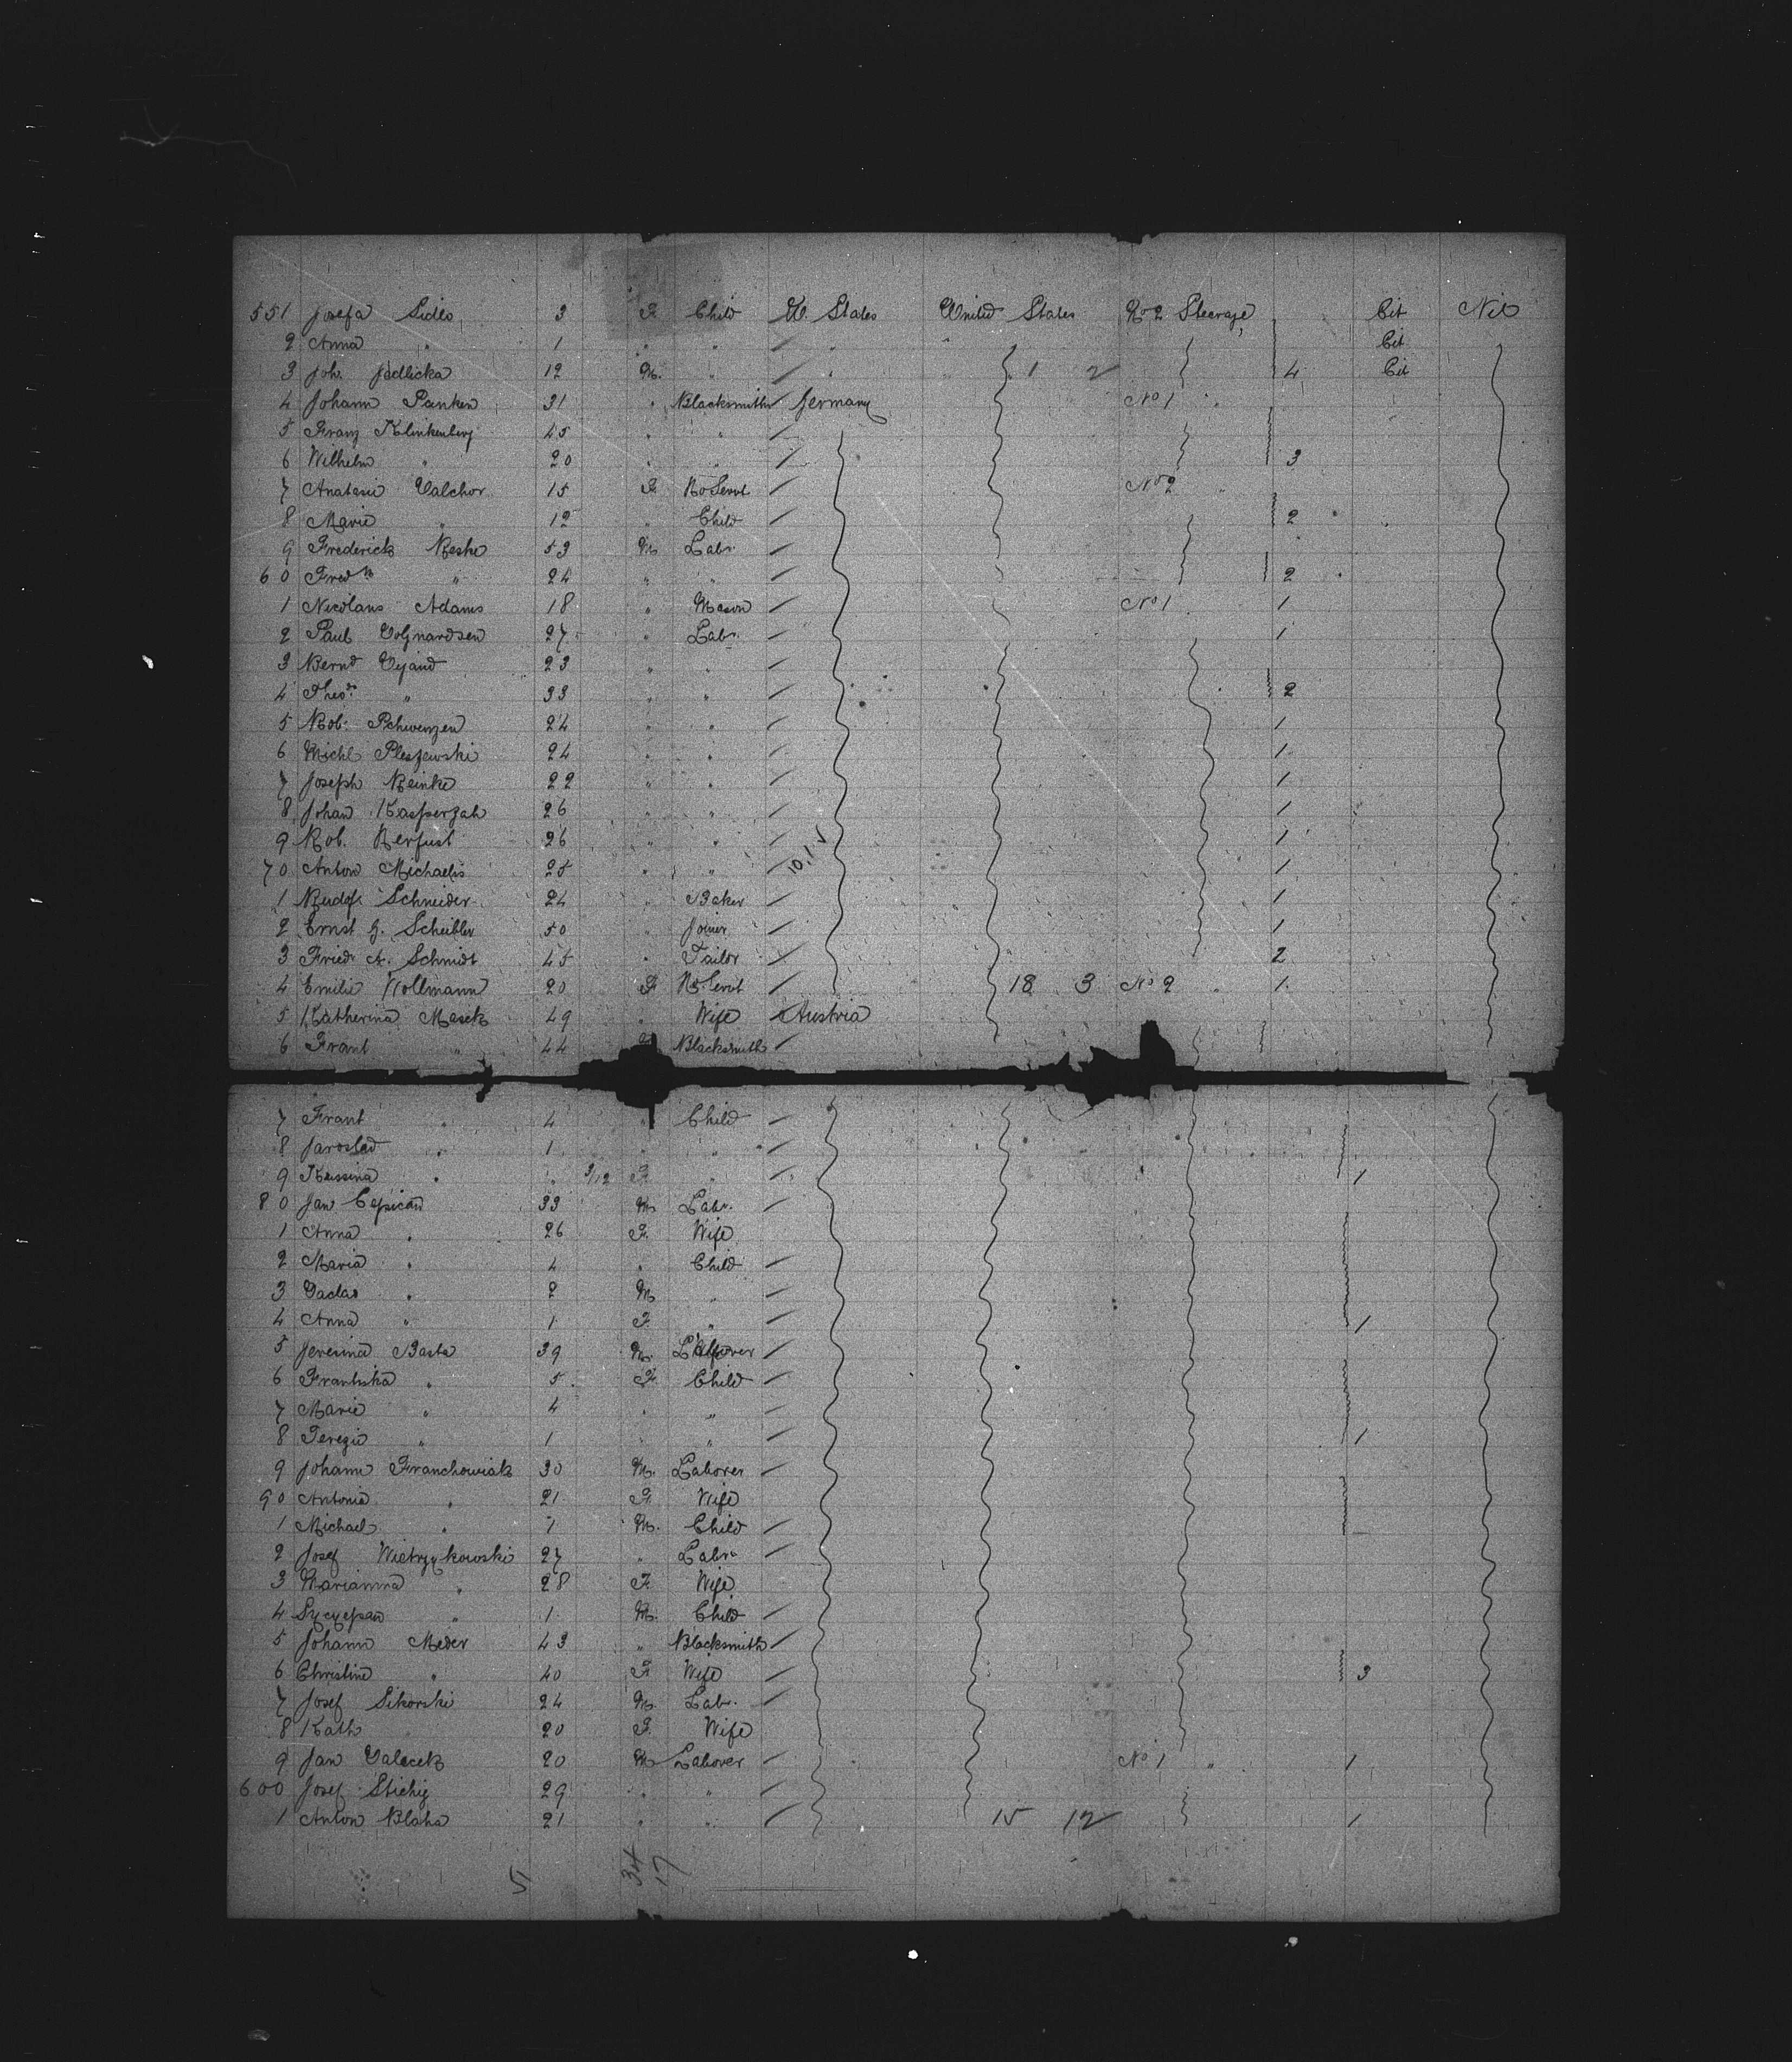 551 Josefa Sidlo 3 F. Child U. States United States No 2 Steerage, Cit Nil
2 Anna " 1 " " " " Cit
3 Joh. Jedlicka 12 M. " " 1 2 4 Cit
4 Johann Panken 31 " Blacksmith Germany No 1 "
5 Franz Klinkenberg 45 " "
6 Wilhelm " 20 " " 3
7 Valchor 15 F. No 2 "
8 Marie " 12 " Child 2
9 Frederick Reske 53 M Labr.
60 Fredk " 24 " " 2
1 Nicolaus Adams 18 " Mason No 1 1
2 Paul Volquardsen 27 " Labr. 1
3 Bernd 23 " "
4 Theo. " 33 " " 2
5 Rob. Schwenzen 24 " " 1
6 Michl Pleszewski 24 " " 1
7 Joseph Reinke 22 " " 1
8 Johan Kasperzak 26 " " 1
9 Rob. 26 " " 1
70 Anton Michaelis 25 " " 1
1 Rudolf Schneider 24 " Baker 1
2 Ernst G. Scheibler 50 " Joiner 1
3 Friedr A. Schmidt 45 " Tailor 2
4 Emilie Wollmann 20 F. 18 3 No 2 " 1
5 Katherina Masek 49 " Wife Austria
6 Frant " 44 Blacksmith
7 Frant " 4 " Child
8 Jaroslad " 1 " "
9 " " 3/12 F. " 1
80 Jan 33 M Labr.
1 Anna " 26 F. Wife
2 Maria " 4 " Child
3 " 2 M "
4 Anna " 1 F. " 1
5 Basta 39 M.
6 Frantiska " 5 F. Child
7 Marie " 4 " "
8 Terezie " 1 " " 1
9 Johann Franchowiak 30 M. Laborer
90 Antonia " 21 F. Wife
1 Michael " 1 M. Child
2 Josef Wietrzykowski 27 " Labr.
3 Marianna " 28 F. Wife
4 " 1 M. Child
5 Johann Meder 43 " Blacksmith
6 Christine " 40 F. Wife 3
7 Josef Sikorski 24 M. Labr.
8 Kath " 20 F. Wife
9 Jan Valacek 20 M Laborer No 1 " 1
600 Josef Stichy 29 " "
1 Anton Blaha 21 " " 15 12 1
34
17